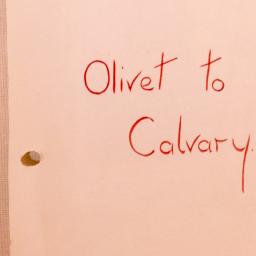 Olivet to
Calvary.